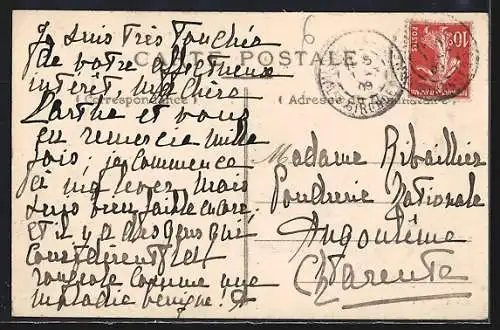 CARTE POSTALE
(Correspondance)
(Adresse du Destinataire)
10c
POSTES
Je suis très touchée
de votre affectueux
intérêt, ma chère
Marthe et vous
en remercie mille
fois; je commence
à me lever mais
suis bien faible encore,
et il y a des gens qui
considèrent la
rougeole comme une
maladie bénigne!
M
Madame Ribaillier
Poudrerie Nationale
Angoulême
Charente